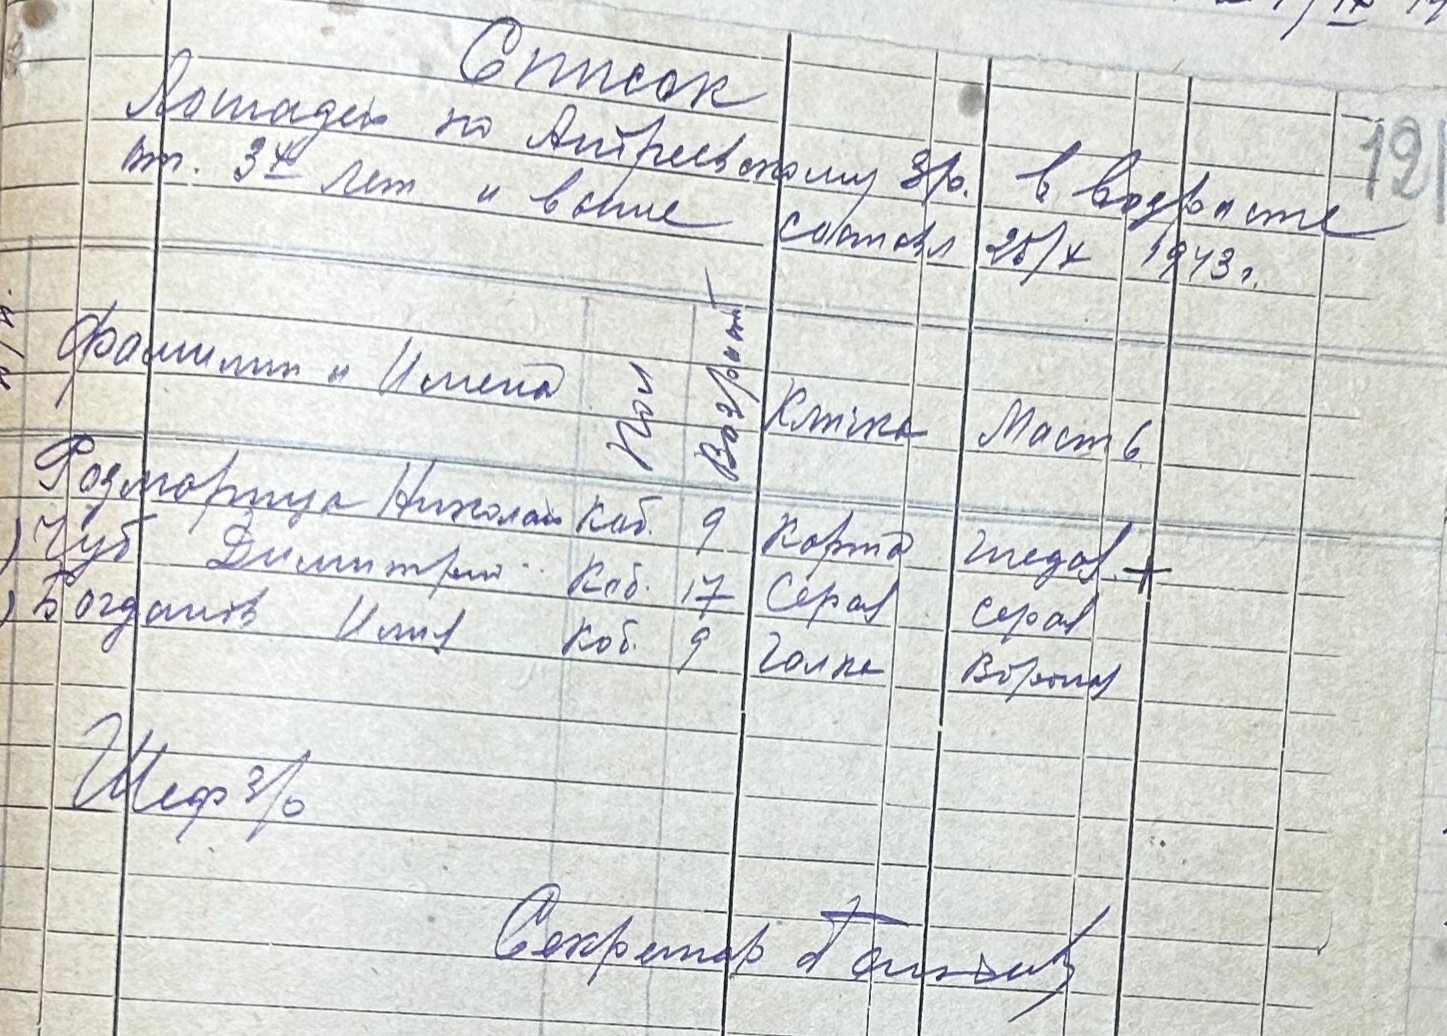 Список
Лошадей по Андреевскому З/о. в возрасте
от. 3х лет и выше составл 25/X 1943 г.
Фамилия и Имена Пол Возраст Кличка Масть
Розмарица Николай Коб. 9 Карта гнедая +
Чуб Димитрий Коб. 17 Серая серая
Богданов Илия Коб. 9 Галка Вороная
Шеф З/о
Секретар
121